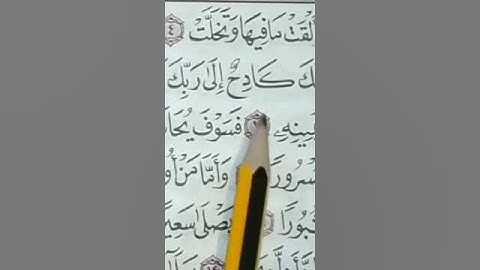 لْقَتْ مَا فِيهَا وَتَخَلَّتْ ٤
كَ كَادِحٌ إِلَىٰ رَبِّكَ
مِينِهِۦ فَسَوْفَ يُحَا
سْرُورًا وَأَمَّا مَنْ أُو
ثُبُورًا يَصْلَىٰ سَعِيرً